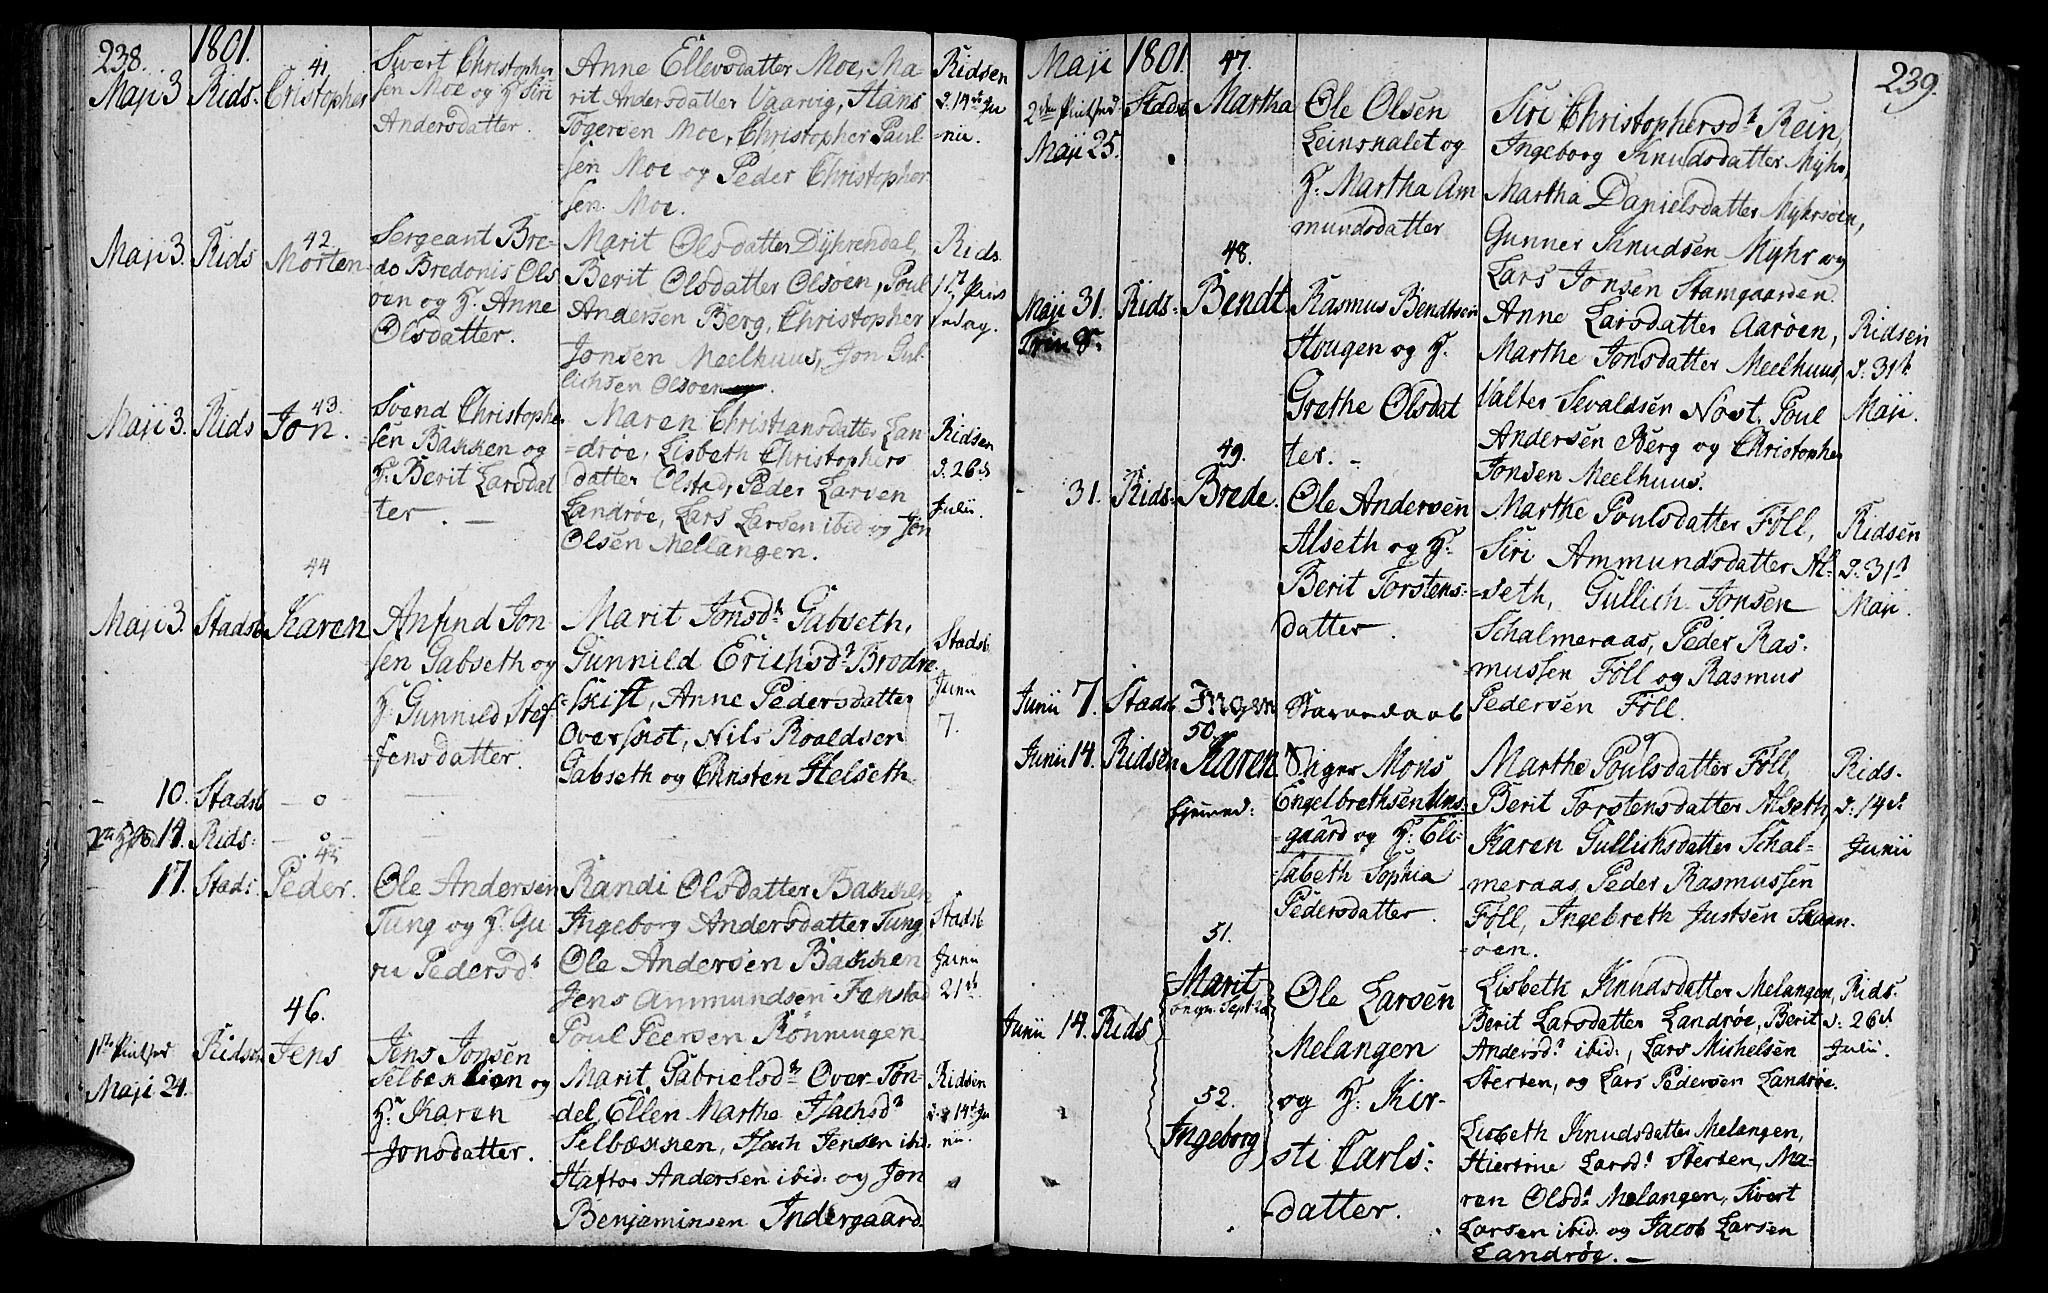 238. 1801.
41
Maji 3 Rids. Cristopher
Sivert Christopher
sen Moe og H. Siri
Andersdatter.
Anne Ellevsdatter Moe, Ma
rit Andersdatter Vaarvig, Hans
Togersen Moe, Christopher Paul-
=sen Moe og Peder Christopher
sen Moe.
Ridsen
d. 14de Ju
=nii.
42.
Maji 3. Rids Morten
Sergeant Bre-
do Bredonis Ols
öen og H. Anne
Olsdatter.
Marit Olsdatter Dyhrendal,
Berit Olsdatter Olsöen, Poul
Andersen Berg, Christopher
Jonsen Meelhuus, Jon Gul-
lichsen Olsöen.
Rids.
43.
Maji 3. Rids Jon.
Svend Christophe
sen Bakken og
H. Berit Larsdat
ter. —
Maren Christiansdatter Lan
=dröe, Lisbeth Christophers
datter Olstad, Peder Larsen
Landröe, Lars Larsen ibid og Jon
Olsen Mellangen.
Ridsen
d. 26de
Julii.
44
Maji 3. Stadsb Karen
Anfind Jon
sen Gabseth og
H. Gunnild Stef
fensdatter.
Marit Jonsdr Gabseth,
Gunnild Erichsdr Brodre
=skift, Anne Pedersdatter
Overskot, Nils Roaldsen
Gabseth og Christen Helseth
Stadsb
Junii
7.
- 10. Stadsb - o
14. Rids: - o -
45
17. Stads: Peder.
Ole Andersen
Tung og H. Gu
ru Pedersdr
Randi Olsdatter Bakken
Ingeborg Andersdatter Tung,
Ole Andersen Bakken
Jens Ammundsen Fenstad
Poul Peersen Rönningen
Stadsb
Junii
21de
46.
1ste Pintsed Ridsen Jens
Maji 24.
Jens Jonsen
Selbekken og
H. Karen
Jonsdatter.
Marit Gabrielsdr Over-Tön-
del, Ellen Marthe Isachsdr
Selbækken, Isach Jensen ibid.
Haftor Andersen ibid: og Jon
Benjaminsen Indergaard
Ridsen
d. 14de Ju
nii.
Maji 1801. 47. 239.
2den Pintsed Stadsb Martha
Maji 25.
Ole Olsen
Leinskalet og
H. Martha Am
mundsdatter
Siri Christophersdr Rein,
Ingeborg Knudsdatter Myhr,
Martha Danielsdatter Myhrsöen,
Gunner Knudsen Myhr og
Lars Jonsen Stamgaarden.
48.
Maji 31. Rids. Bendt.
Rasmus Bendtsen
Hougen og H.
Grethe Olsdat
ter. -
Anne Larsdatter Aaröen,
Marthe Jonsdatter Meelhuus,
Valter Sevaldsen Nost, Poul
Andersen Berg og Christopher
Jonsen Meelhuus.
Ridsen
d. 31te
Maji.
49.
31. Rids. Brede.
Ole Andersen
Alseth og H.
Berit Torstens-
datter.
Marthe Poulsdatter Föll,
Siri Ammundsdatter Al-
=seth, Gullich Jonsen
Schalmeraas, Peder Ras-
=mussen Föll og Rasmus
Pedersen Föll.
Ridsen
d. 31te
Maji.
Junii 7. Stadsb Ingen Barnedaab
50.
Junii 14. Ridsen Karen
hjemmed:
Mons
Engelbrethsen Uns-
=gaard og H. Eli-
=sabeth Sophia
Pedersdatter.
Marthe Poulsdatter Föll,
Berit Torstensdatter Alseth,
Karen Gullichsdatter Schal-
meraas, Peder Rasmussen
Föll, Ingebreth Justsen Skaan
=öen.
Rids.
d. 14de
Junii
51.
Marit
Junii 14. Rids
52.
Ingeborg
Ole Larsen
Melangen
og H. Kir-
sti Carls-
=datter.
Lisbeth Knudsdatter Melangen,
Berit Larsdatter Landröe, Berit
Andersdr ibid:, Lars Michelsen
Stersen, og Lars Pedersen Landröe.
Rids.
d. 26de
Julii.
Lisbeth Knudsdatter Melangen,
Hierstine Larsdr Stersen, Ma-
ren Olsdr Melangen, Sivert
Larsen ibid. og Jacob Larsen
Landröe. —